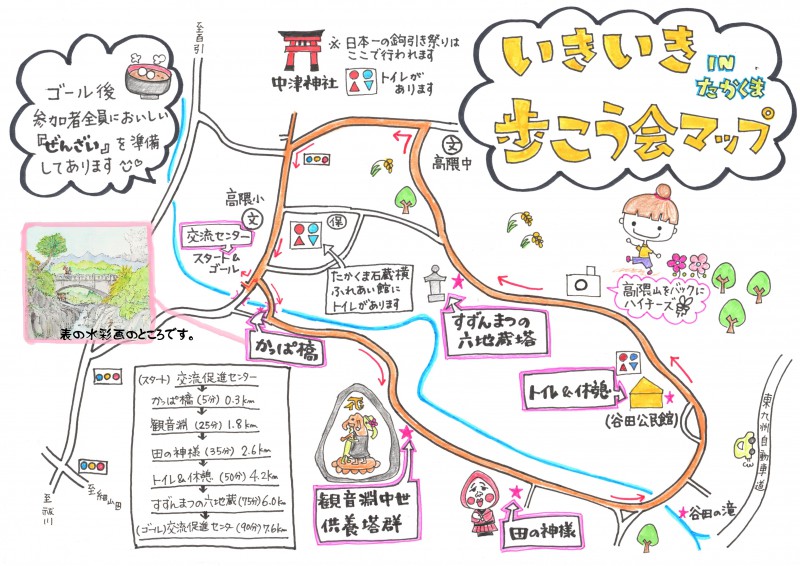 いきいき
IN
たかくま
歩こう会マップ
ゴール後
参加者全員においしい
『ぜんざい』を準備
してあります
至百引
中津神社
※日本一の鉤引き祭りは
ここで行われます
トイレが
あります
文
高隈中
高隈小
文
保
交流センター
スタート&
ゴール
たかくま石蔵横
ふれあい館に
トイレがあります
表の水彩画のところです。
かっぱ橋
すずんまつの
六地蔵塔
高隈山をバックに
ハイチーズ
トイレ&休憩
(谷田公民館)
東九州自動車道
(スタート)交流促進センター
かっぱ橋(5分)0.3km
観音淵(25分)1.8km
田の神様(35分)2.6km
トイレ&休憩(50分)4.2km
すずんまつの六地蔵(75分)6.0km
(ゴール)交流促進センター(90分)7.6km
観音淵中世
供養塔群
田の神様
谷田の滝
至細山田
至祓川